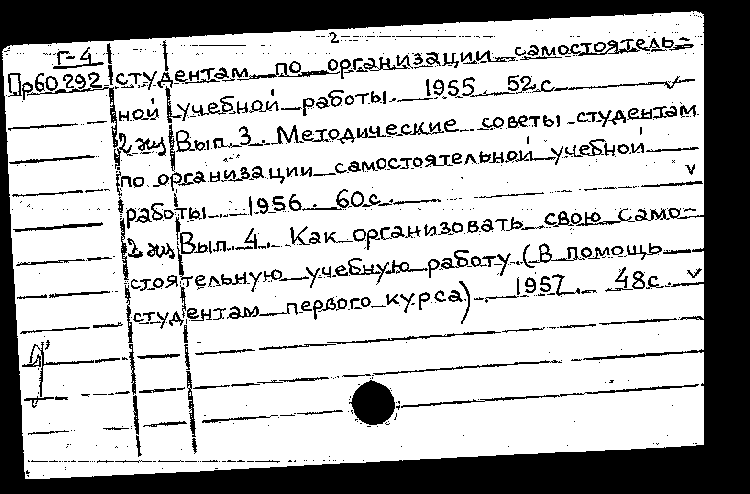 2
Г-4
Пр60292 студентам по организации самостоятель-
ной учебной работы. 1955. 52с
2 экз Вып. 3. Методические советы студентам
по организации самостоятельной учебной
работы 1956. 60с.
2 экз Вып. 4. Как организовать свою само-
стоятельную учебную работу. (В помощь
студентам первого курса). 1957. 48с.